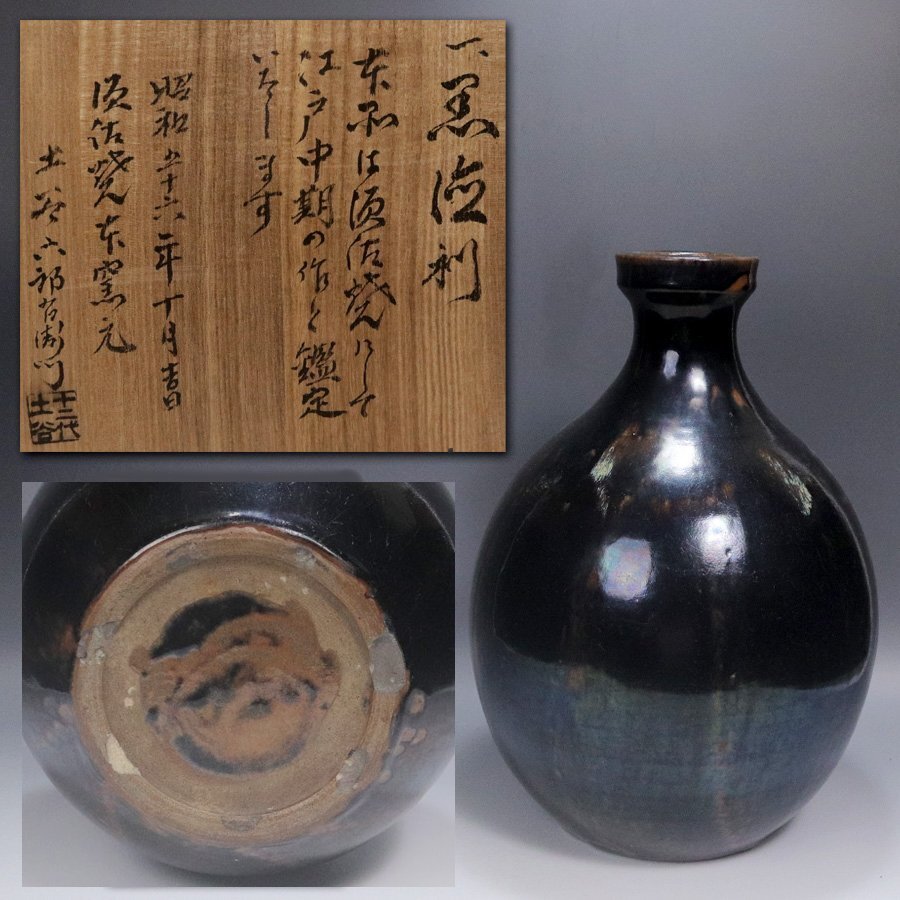 一、黒徳利
本品は須佐焼にして
江戸中期の作と鑑定
いたします
昭和五十六年十月吉日
須佐焼本窯元
土谷六郎右衛門
十二代
土谷